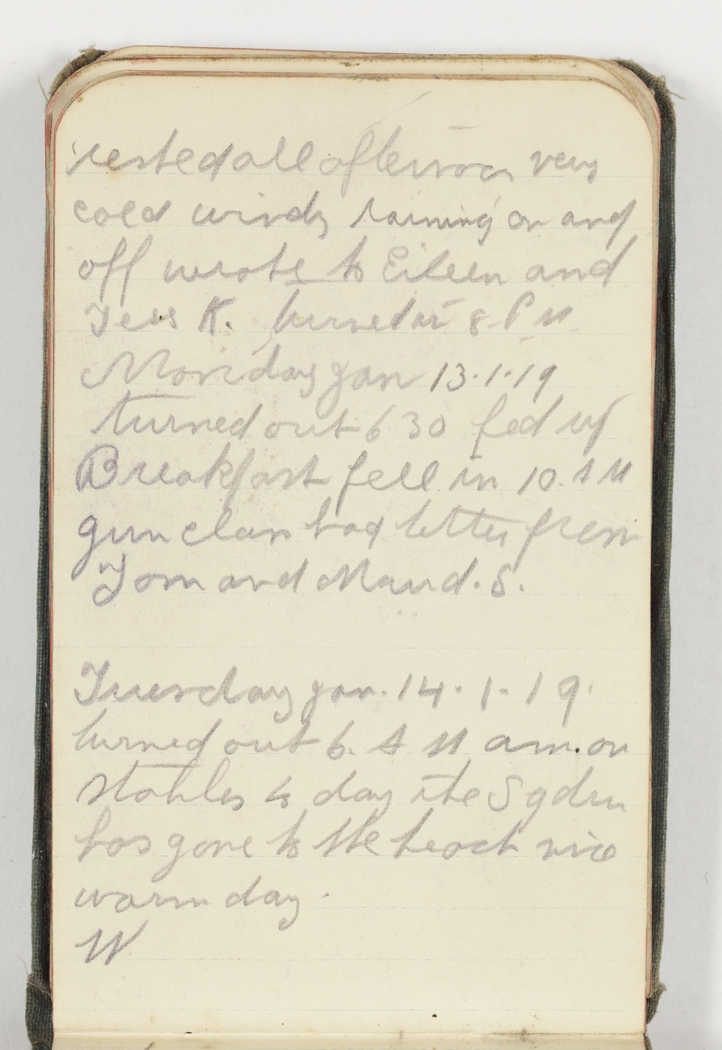 rested all afternoon very
cold windy raining on and
off wrote to Eileen and
Tess K. turned in 8 P M
Monday Jan 13.1.19
turned out 6 30 fed up
Breakfast fell in 10 A M
gun class had letter from
Tom and Maud. S.
Tuesday Jan. 14.1.19.
turned out 6. A M am on
stables 4 day the Sqdrn
has gone to the beach nice
warm day.
W